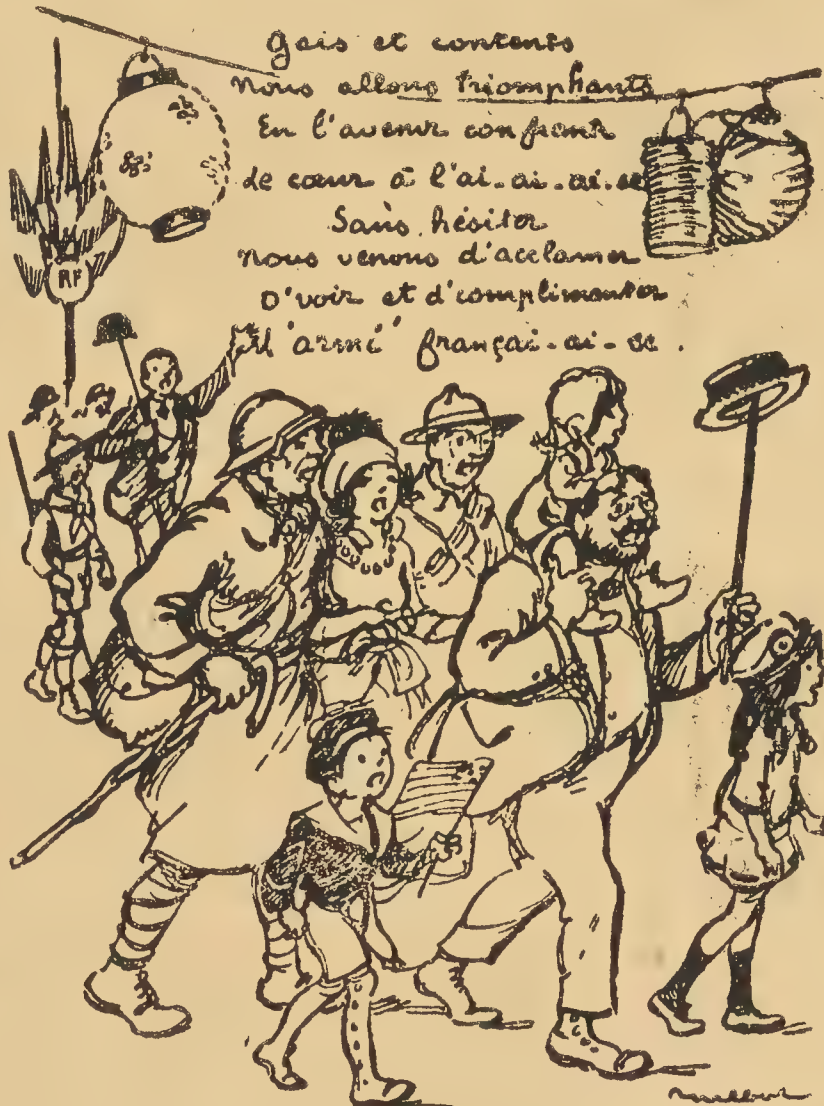 Gais et contents
Nous allons triomphants
En l'avenir confiants
Le cœur à l'ai-ai-ai-se
Sans hésiter
Nous venons d'acclamer
D'voir et d'complimenter
l'armé' françai-ai-se.
RF